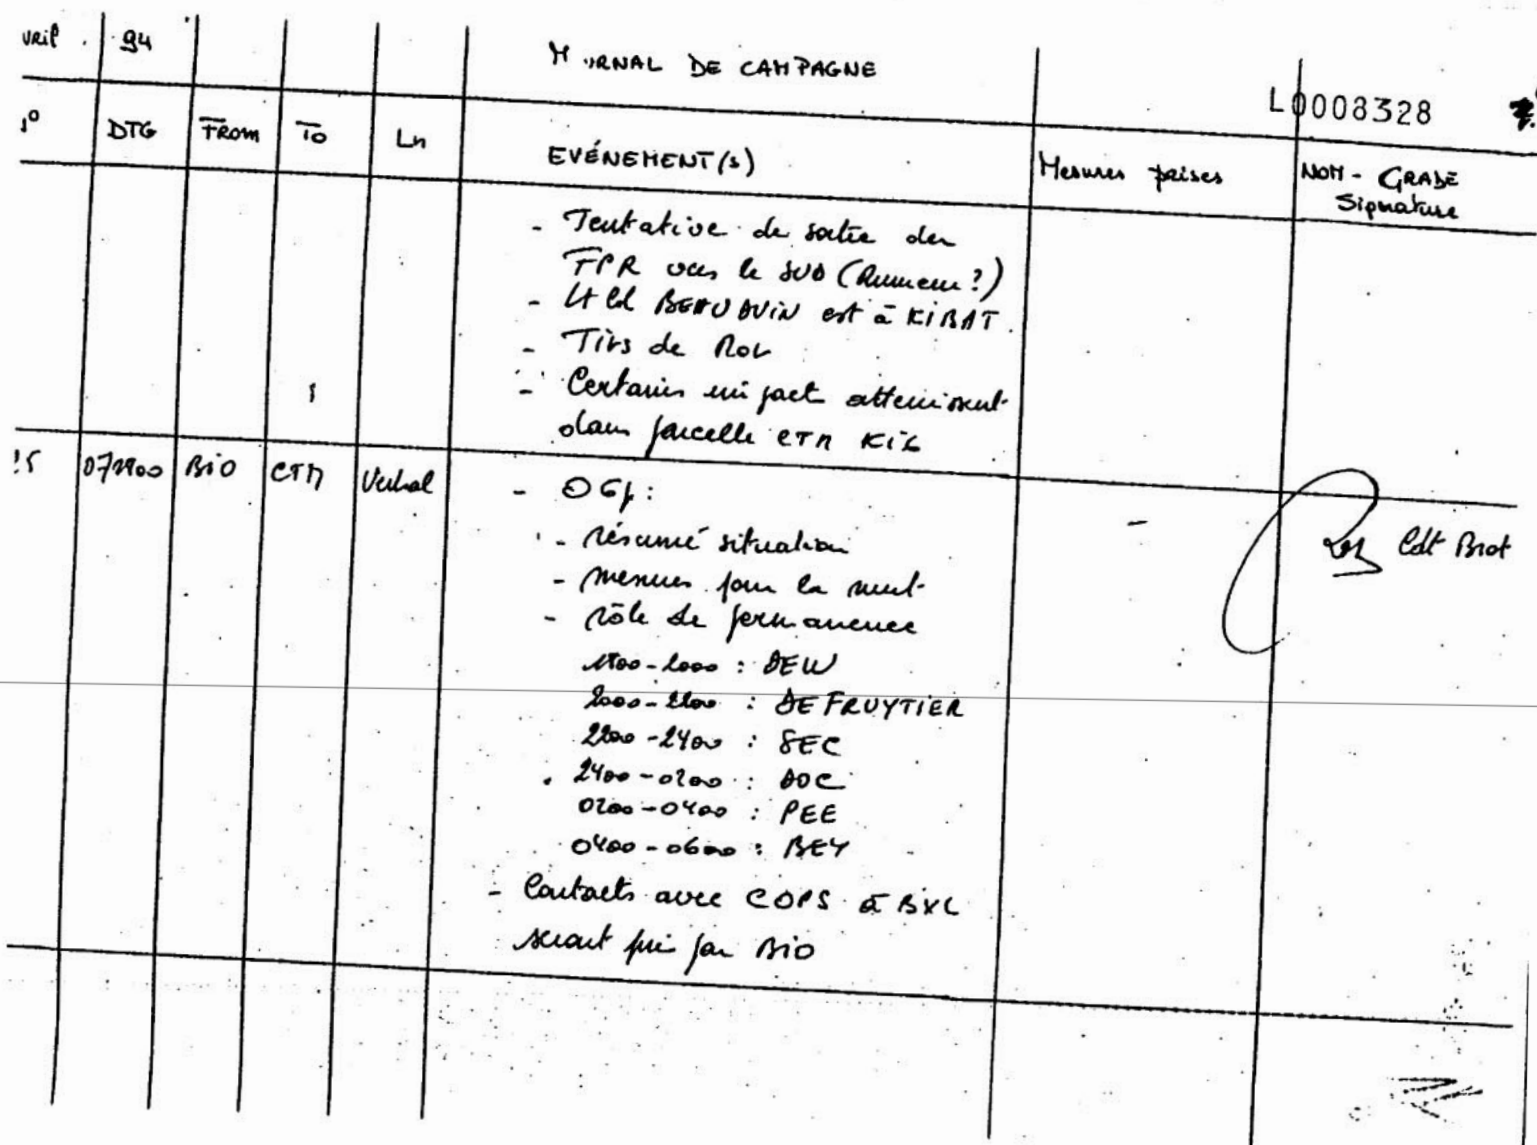 vril 94 JOURNAL DE CAMPAGNE
L0008328
N° DTG From To Ln EVÉNEMENT(s) Mesures prises NOM - GRADE
Signature
- Tentative de sortie du
FPR vers le SUD (Rumeur ?)
- Lt Col BEAUDUIN est à KIBAT
- Tirs de
- Certains impact atterrissent
dans parcelle CTM KIG
25 071900 BIO CTM Verbal - OGp :
- résumé situation
- mesures pour la nuit
- rôle de permanence
- Cdt Biot
1800-2000 : DEW
2000-2200 : DEFRUYTIER
2200-2400 : SEC
2400-0200 : DOC
0200-0400 : PEE
0400-0600 : BEY
- Contacts avec COPS à BXL
seront pris par BIO